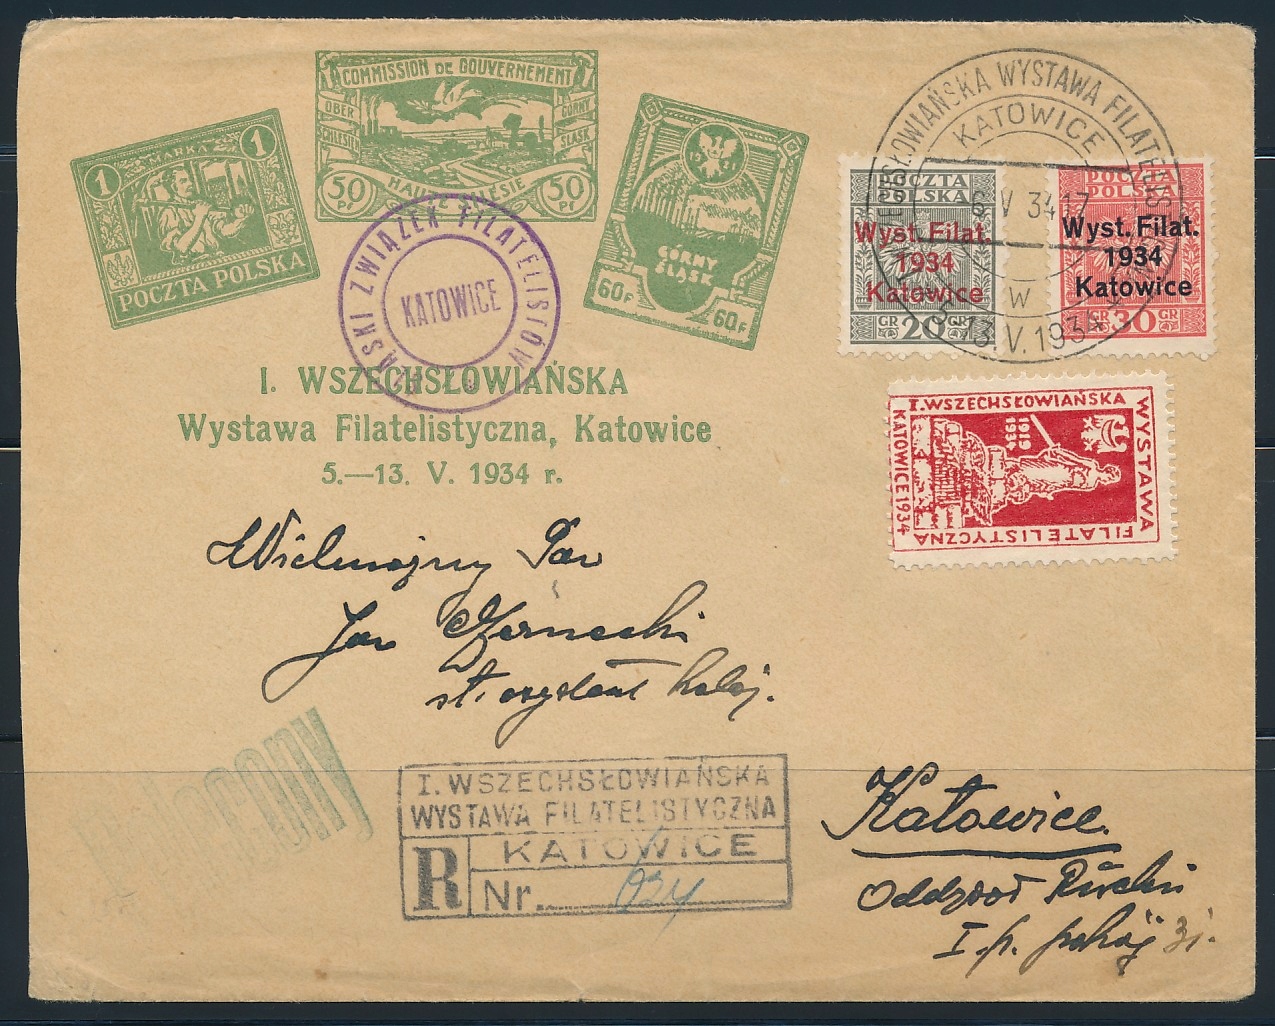 COMMISSION DE GOUVERNEMENT
OBER SCHLESIEN
GÓRNY ŚLĄSK
HAUTE SILÉSIE
50 Pf
50 Pf
1 MARKA 1
POCZTA POLSKA
GÓRNY
ŚLĄSK
60 F
60 F
ŚLĄSKI ZWIĄZEK FILATELISTÓW
KATOWICE
I. WSZECHSŁOWIAŃSKA
Wystawa Filatelistyczna, Katowice
5.—13. V. 1934 r.
WSZECHSŁOWIAŃSKA WYSTAWA FILATELIST
KATOWICE
6 V 34 17
W
5-13.V.1934
POCZTA
POLSKA
Wyst. Filat.
1934
Katowice
GR 20 GR
POCZTA
POLSKA
Wyst. Filat.
1934
Katowice
GR 30 GR
I. WSZECHSŁOWIAŃSKA
WYSTAWA
FILATELISTYCZNA
KATOWICE 1934
1919
1934
Wielmożny Pan
Jan
Katowice.
I. p. pokój 31.
Polecony
I. WSZECHSŁOWIAŃSKA
WYSTAWA FILATELISTYCZNA
R KATOWICE
Nr. 034